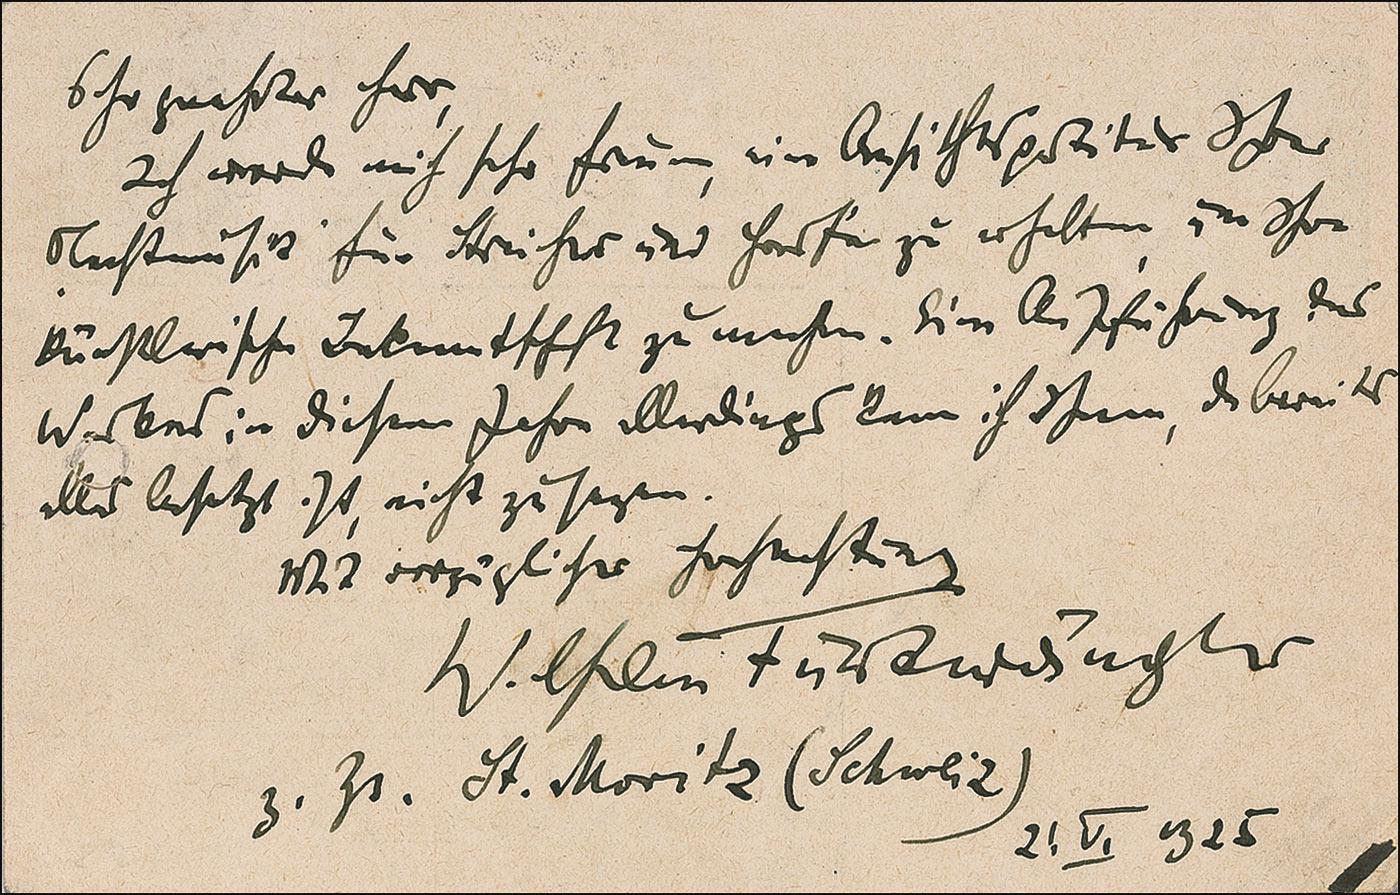 Sehr geehrter Herr,
Ich werde mich sehr freuen, ein Ansichtspartitur Ihrer
Nachtmusik für Streicher und Harfe zu erhalten, um Ihre
künstlerische Bekanntschaft zu machen. Eine Aufführung des
Werkes in diesem Jahre allerdings kann ich Ihnen, da bereits
alles besetzt ist, nicht zusagen.
Mit vorzüglicher Hochachtung
Wilhelm Furtwängler
z. Zt. St. Moritz (Schweiz)
21. V. 1925